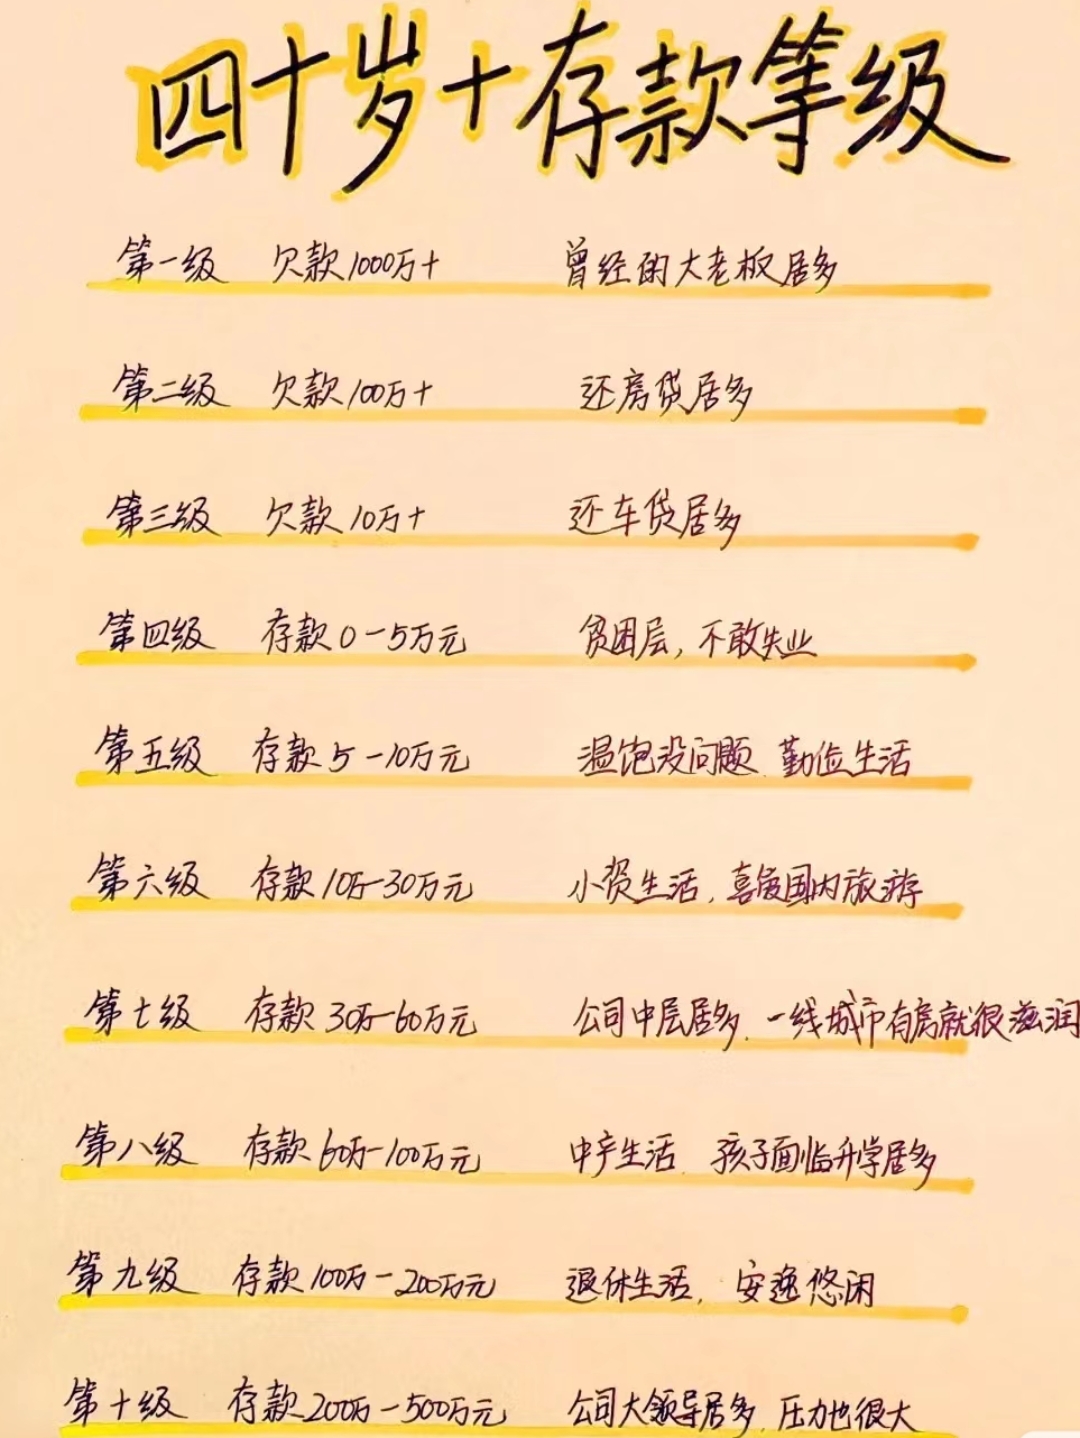 四十岁+存款等级
第一级 欠款1000万+ 曾经的大老板居多
第二级 欠款100万+ 还房贷居多
第三级 欠款10万+ 还车贷居多
第四级 存款0-5万元 贫困层,不敢失业
第五级 存款5-10万元 温饱没问题.勤俭生活
第六级 存款10万-30万元 小资生活,喜爱国内旅游
第七级 存款30万-60万元 公司中层居多.一线城市有房就很滋润
第八级 存款60万-100万元 中产生活.孩子面临升学居多
第九级 存款100万-200万元 退休生活,安逸悠闲
第十级 存款200万-500万元 公司大领导居多.压力也很大